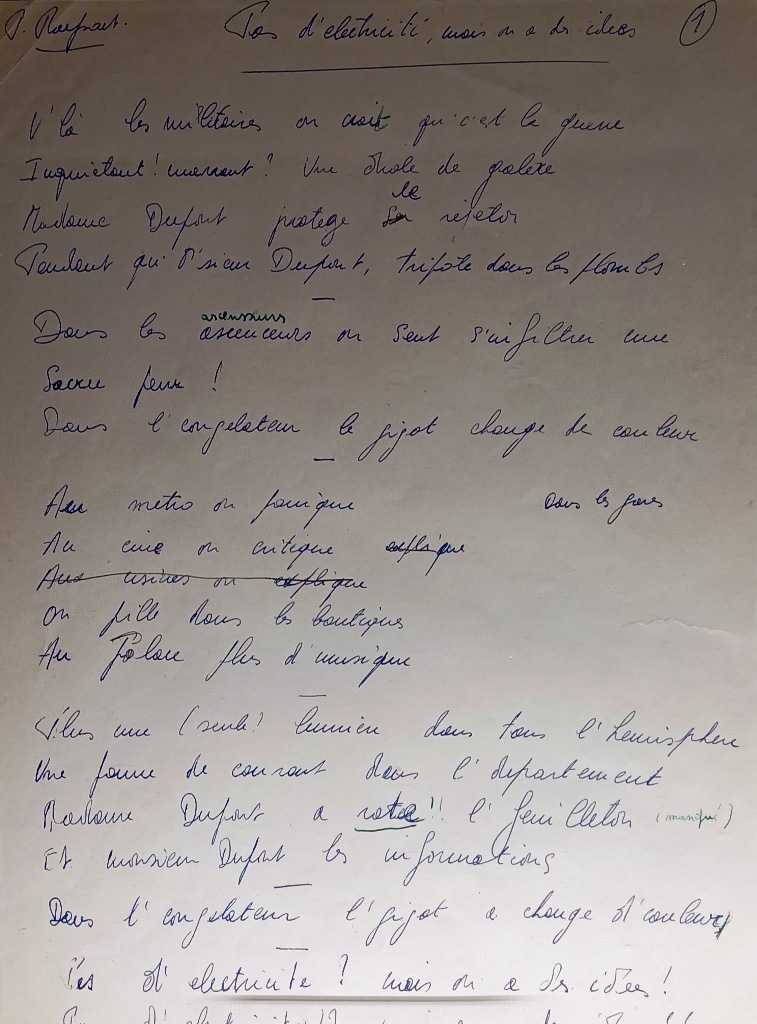 Pas d'électricité, mais on a des idées 1
V'là les militaires on croit qu'c'est la guerre
Inquiétant! marrant? Une drôle de galère
le
Madame Dupont protège rejeton
Pendant qu'M'sieur Dupont, tripote dans les plombs
ascenseurs
Dans les ascenceurs on sent s'infiltrer une
Sacrée peur !
Dans l'congelateur le gigot change de couleur
Au métro on panique Dans les gares
Au ciné on critique explique
Aux usines on explique
On pille dans les boutiques
Au Palace plus d'musique
Plus une (seule) lumière dans tous l'hemisphere
Une panne de courant dans l'departement
Madame Dupont a raté!! l'feuilleton (manqué)
Et monsieur Dupont les informations
Dans l'congelateur l'gigot a changé d'couleur
Pas d'electricité ? mais on a des idées !